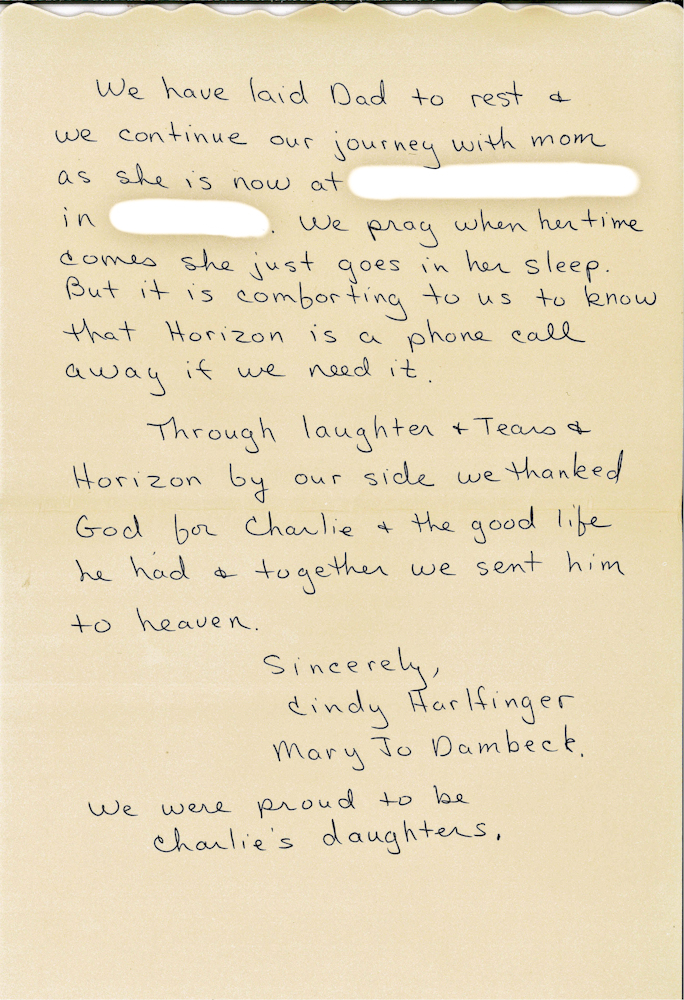 We have laid Dad to rest &
we continue our journey with mom
as she is now at
in . We pray when her time
comes she just goes in her sleep.
But it is comforting to us to know
that Horizon is a phone call
away if we need it.
Through laughter & Tears &
Horizon by our side we thanked
God for Charlie & the good life
he had & together we sent him
to heaven.
Sincerely,
Cindy Harlfinger
Mary Jo Dambeck.
We were proud to be
Charlie's daughters.